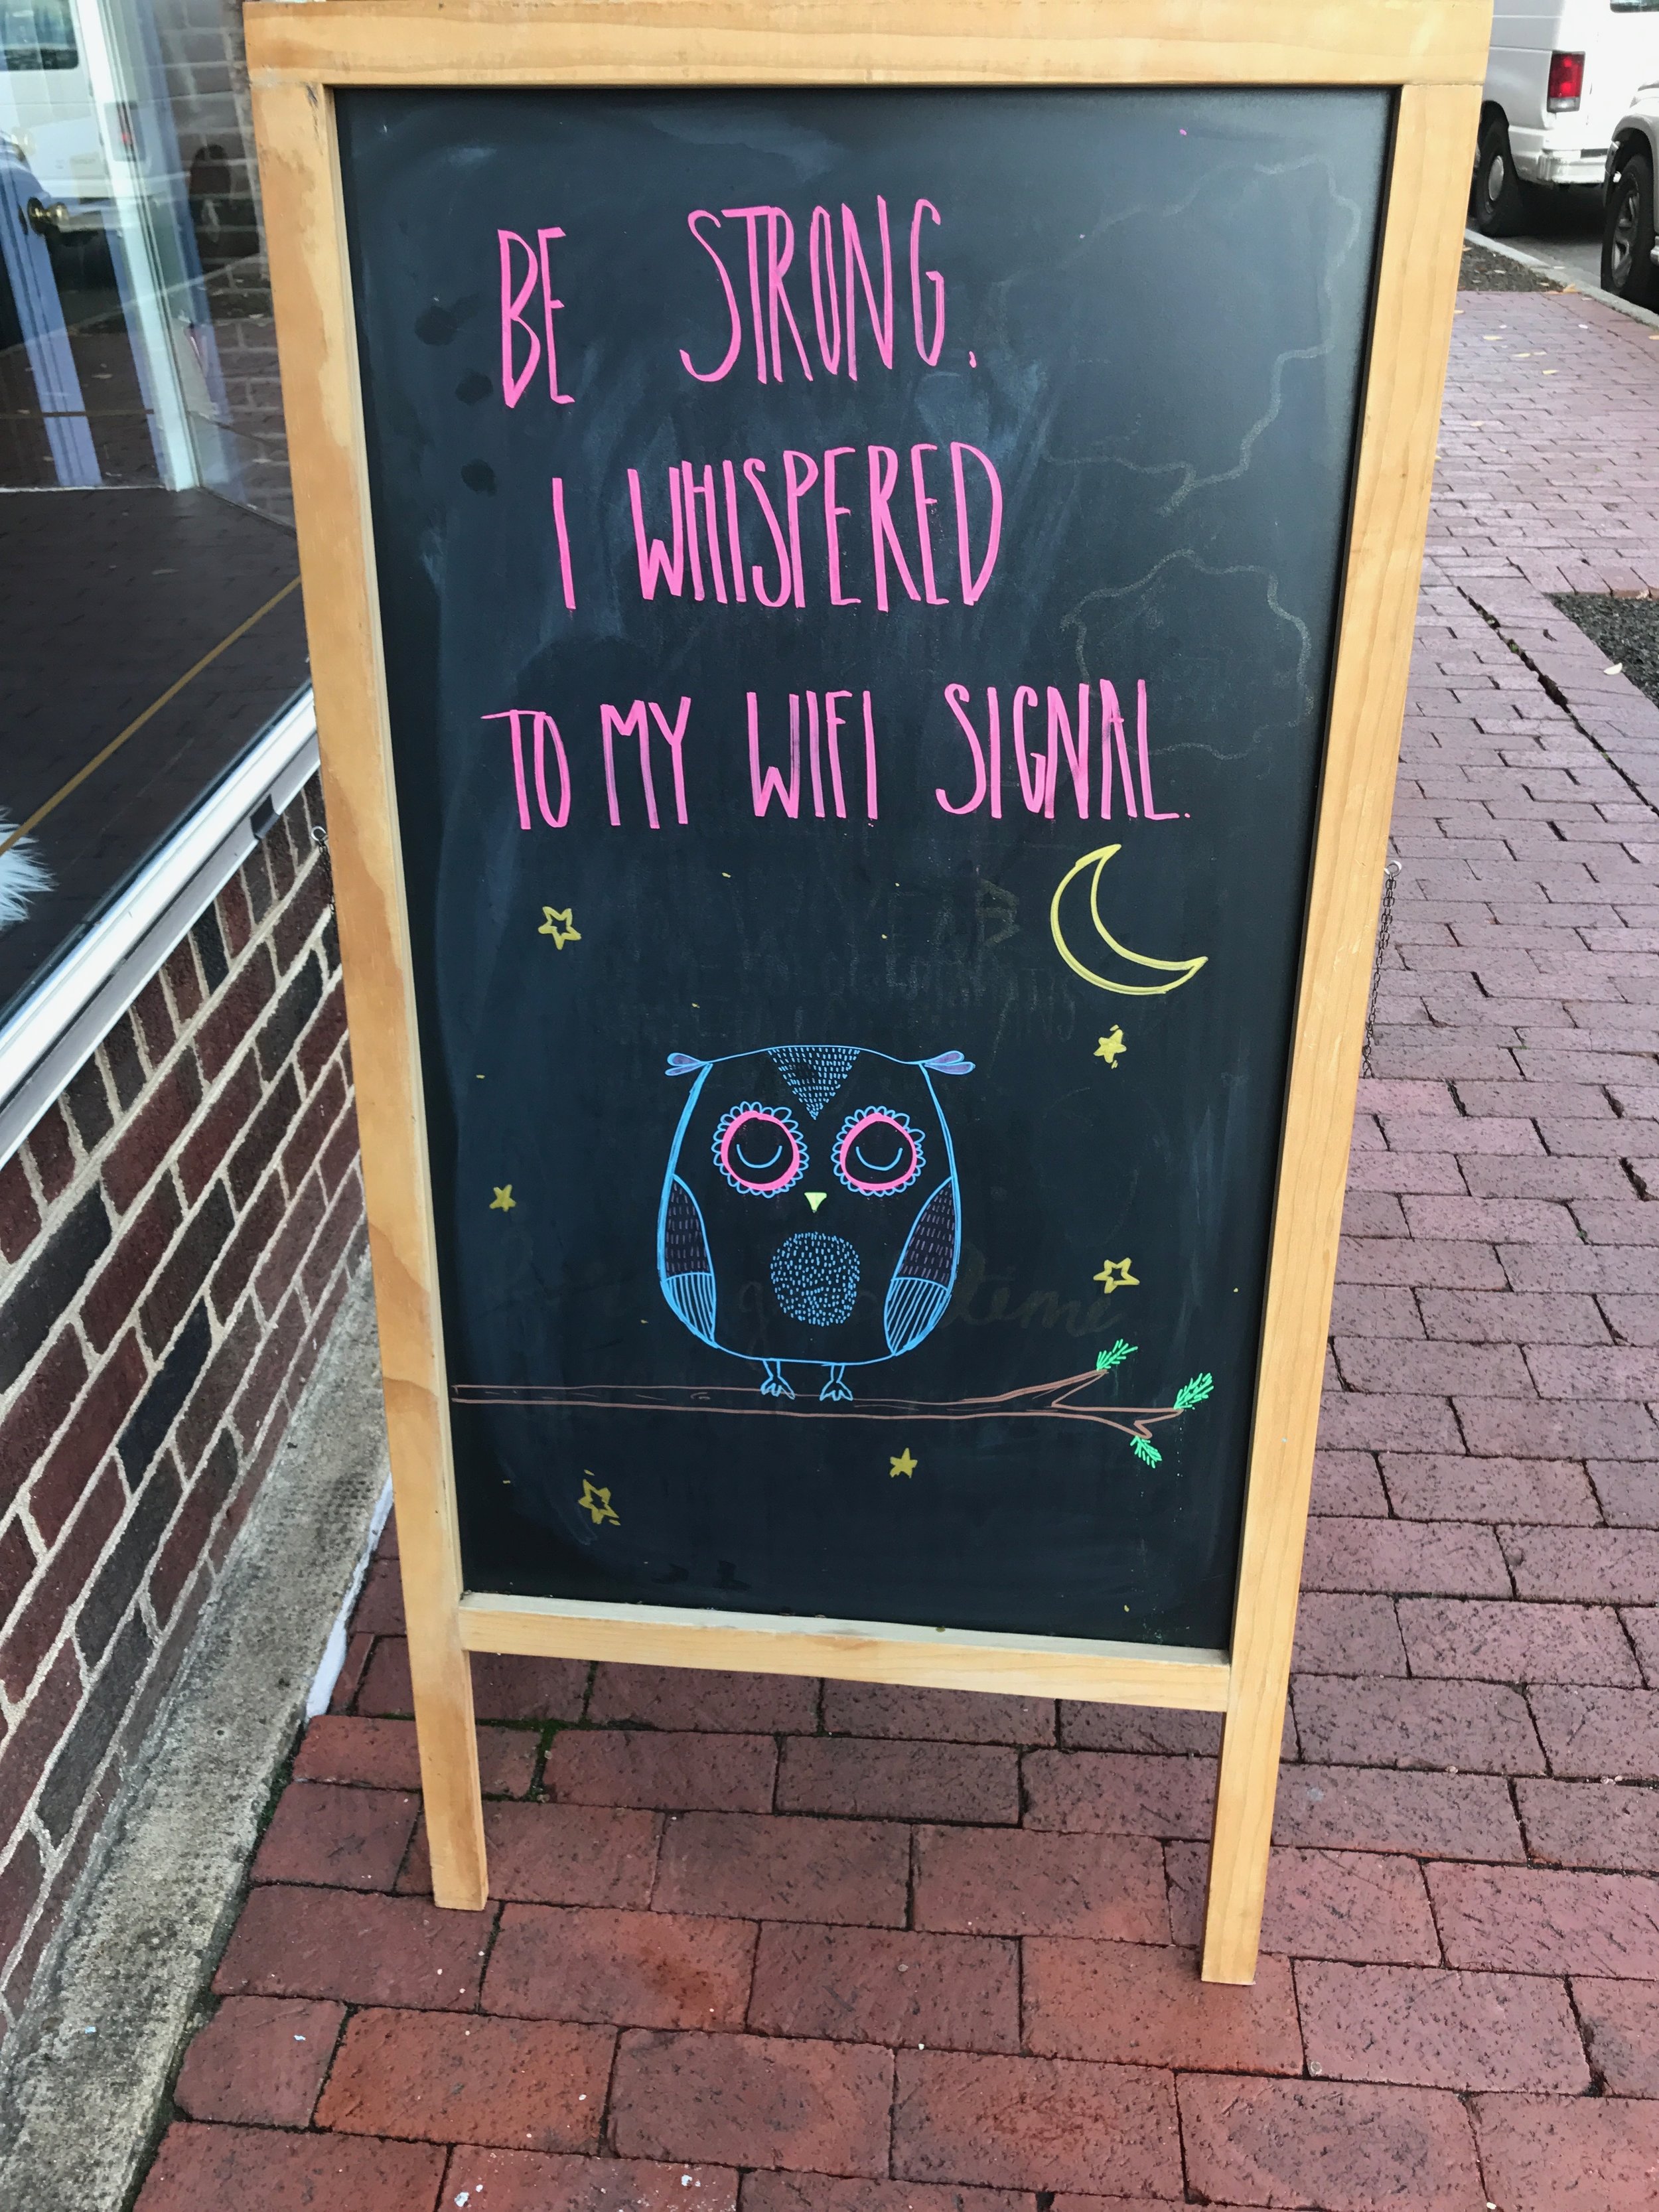 BE STRONG.
I WHISPERED
TO MY WIFI SIGNAL.
time